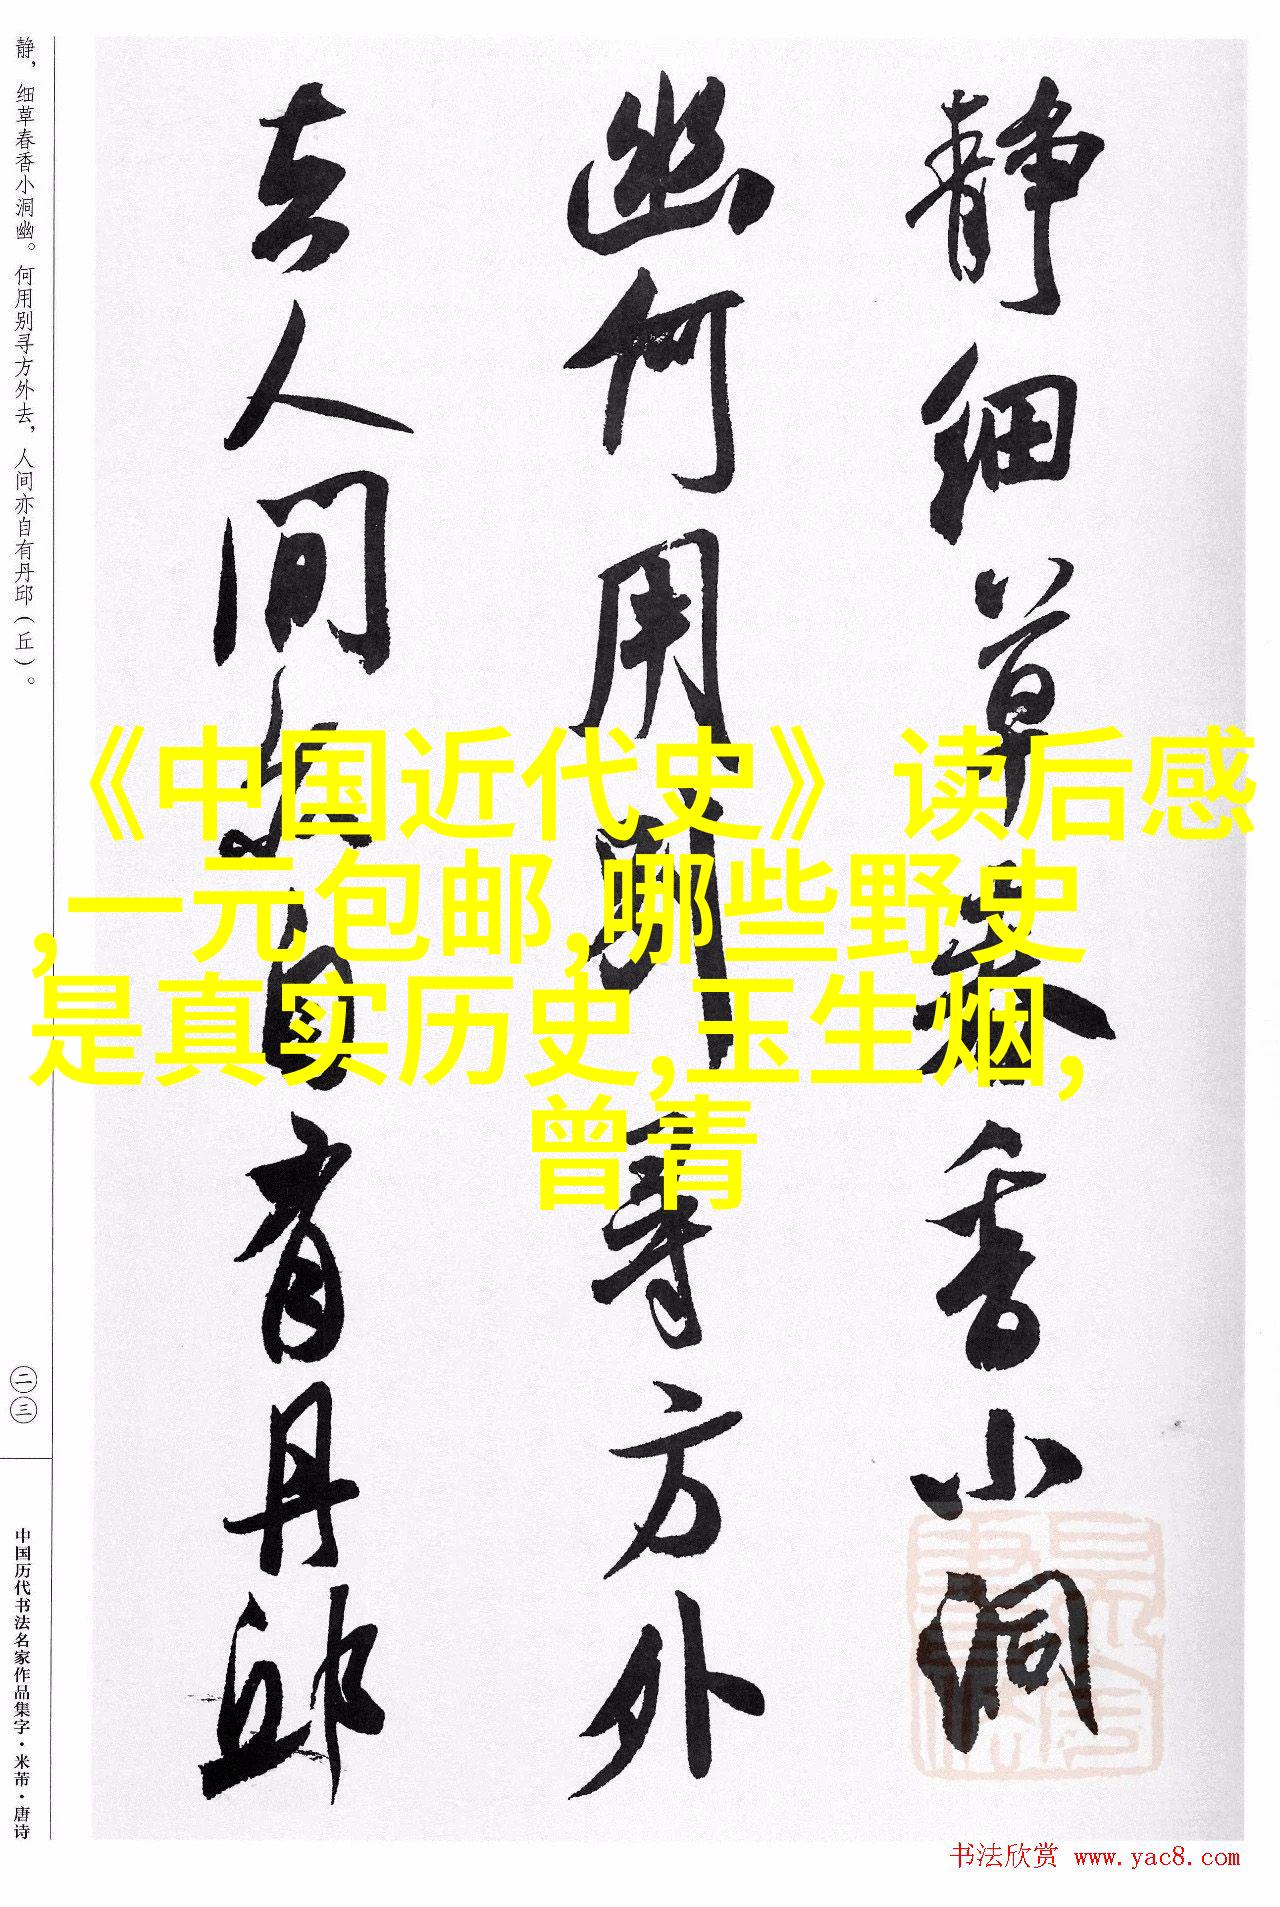 静细草春香小洞
幽何用别寻方外
去人间亦自有丹邱
《中国近代史》读后感
,一元包邮,哪些野史
是真实历史,玉生烟,
曾青
静，细草春香小洞幽。何用别寻方外去，人间亦自有丹邱（丘）。
二三
中国历代书法名家作品集字·米芾·唐诗
书法欣赏 www.yac8.com